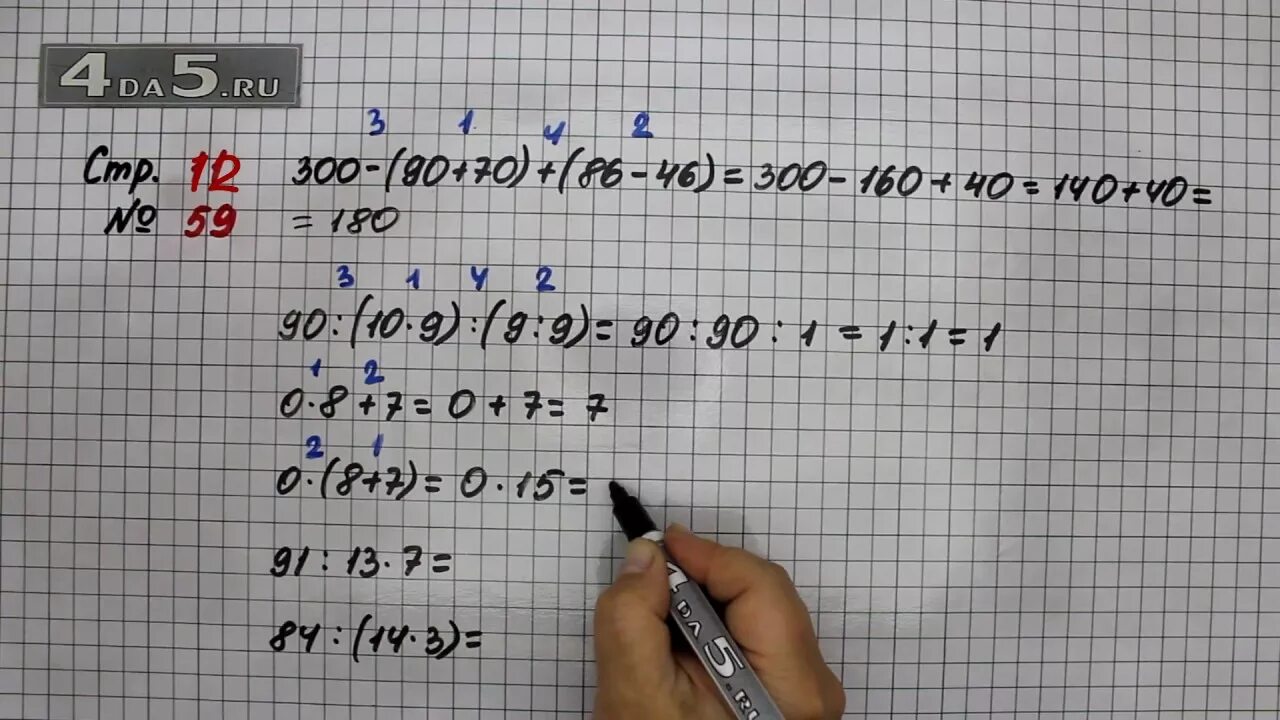 4DA5.RU
3 1 4 2
Стр. 12 300-(90+70)+(86-46)=300-160+40=140+40=
№ 59 =180
3 1 4 2
90:(10·9):(9:9)=90:90:1=1:1=1
1 2
0·8+7=0+7=7
2 1
0·(8+7)=0·15=
91:13·7=
84:(14·3)=
4DA5.RU